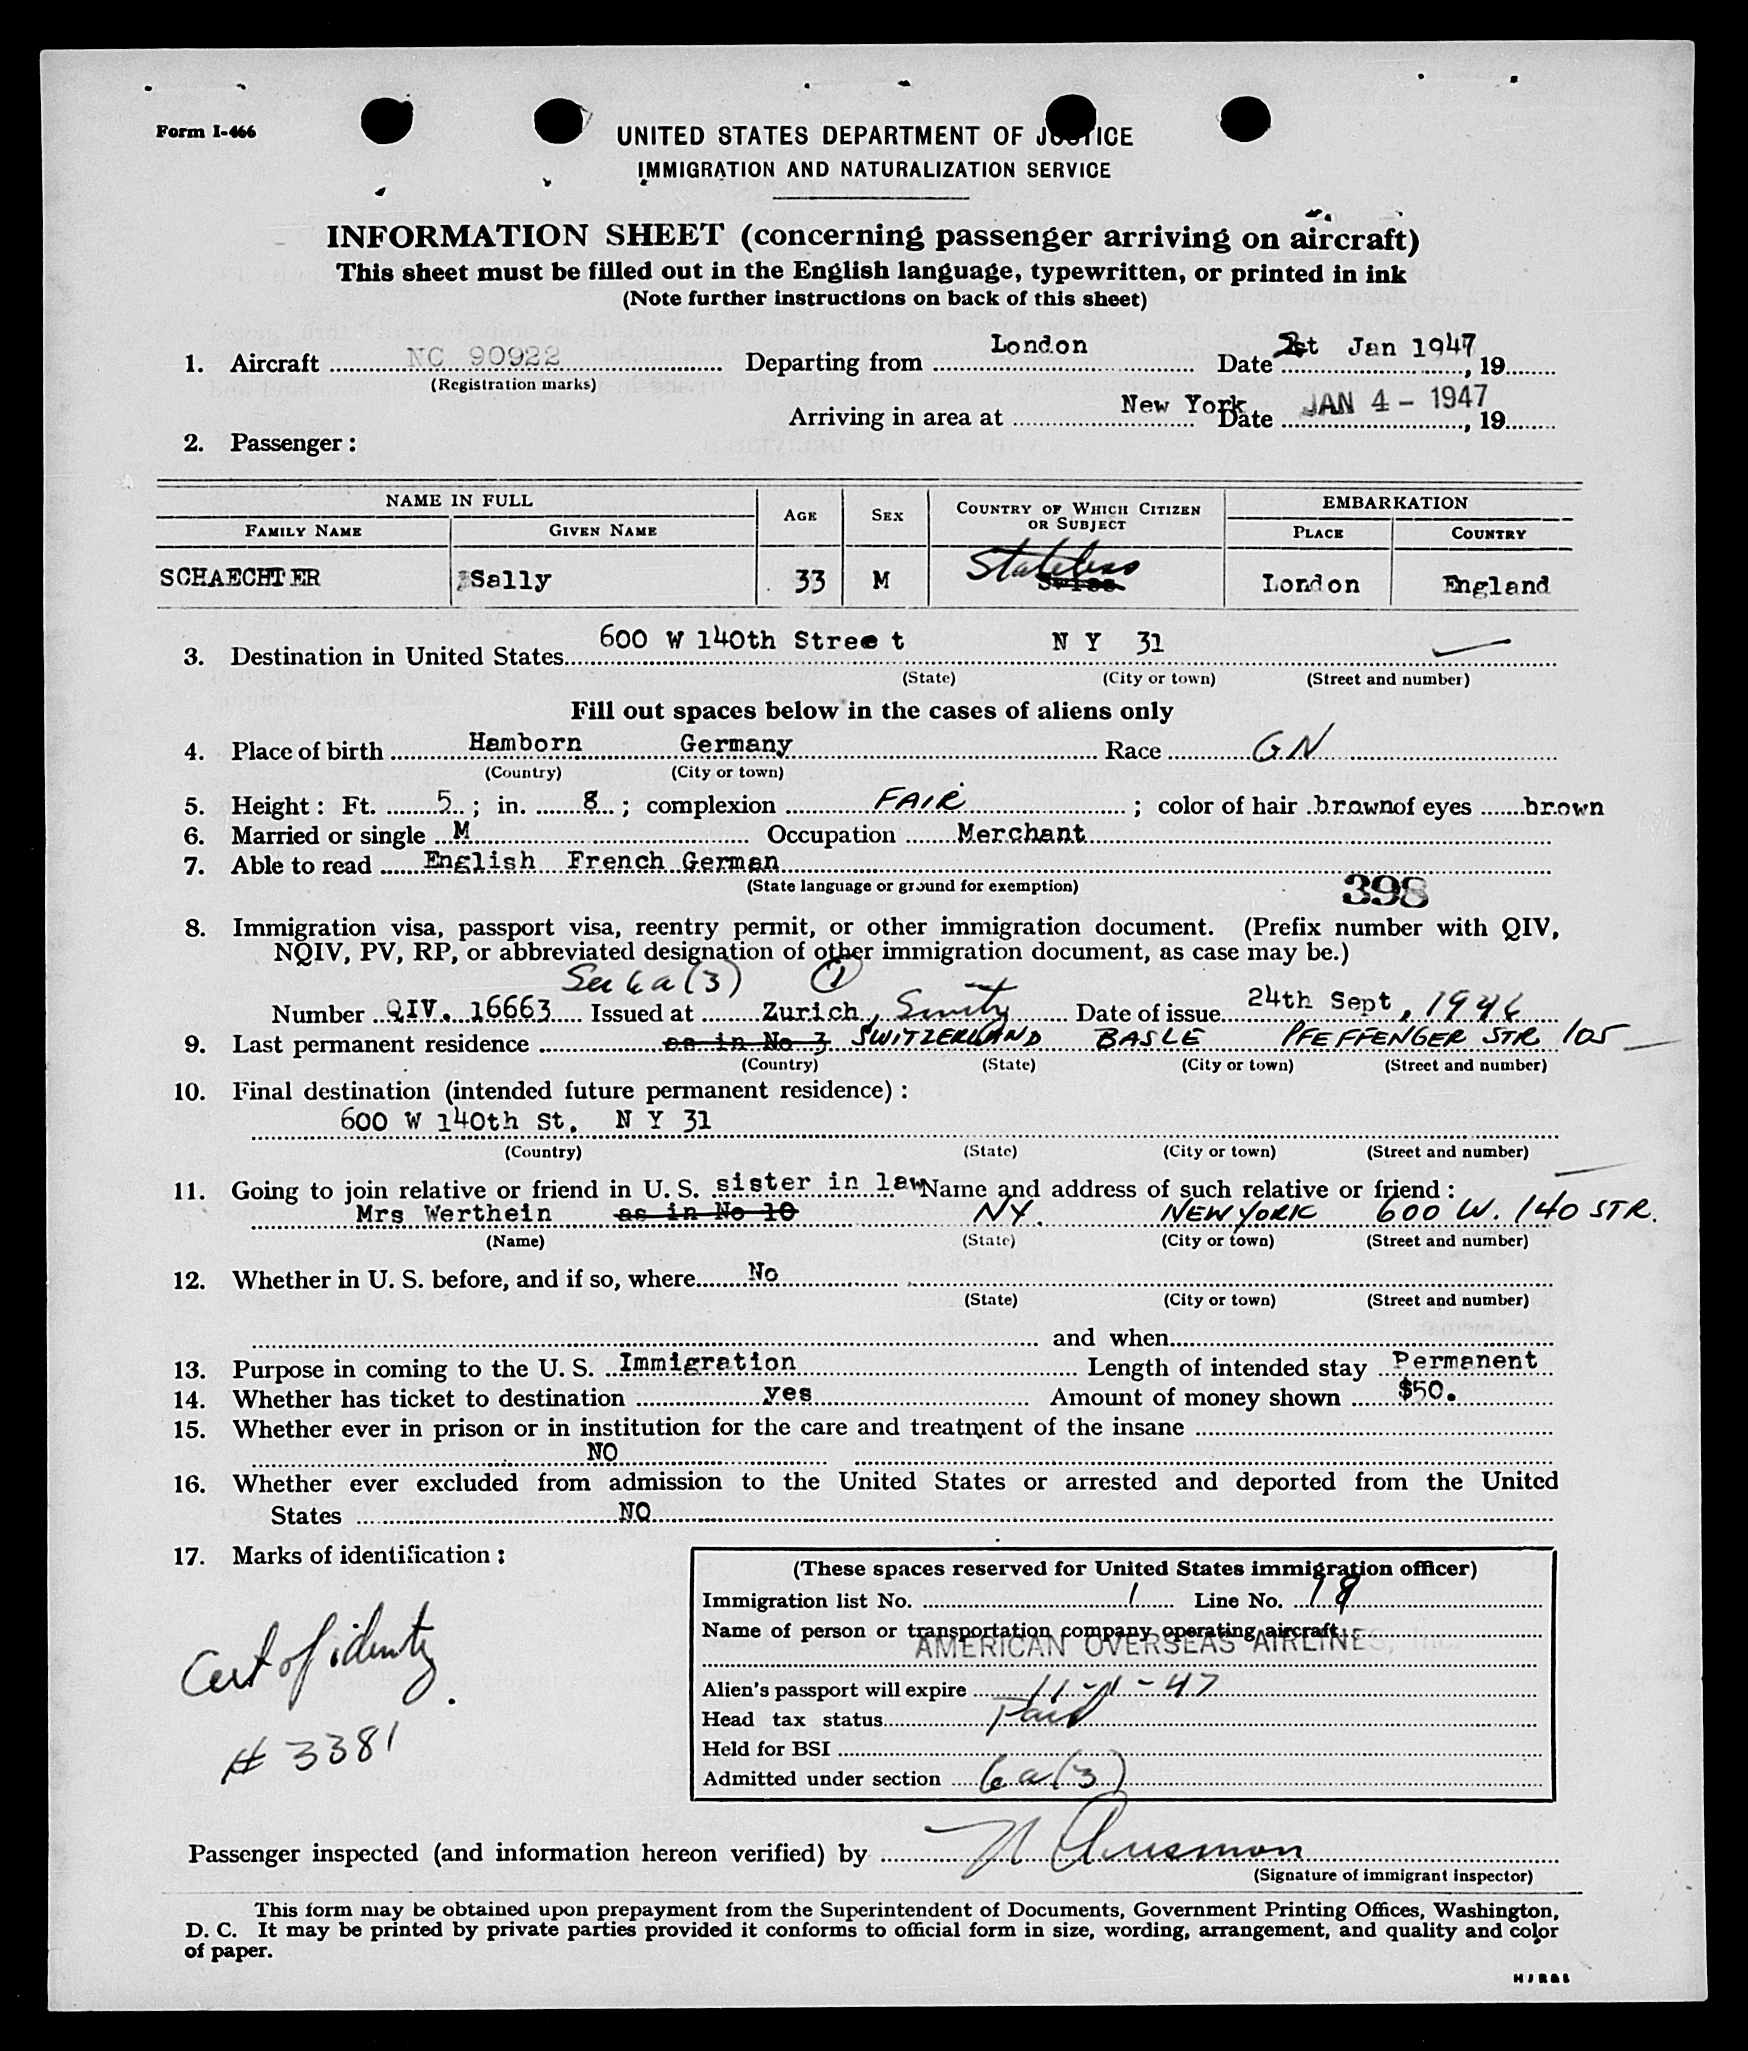 Form I-466
UNITED STATES DEPARTMENT OF JUSTICE
IMMIGRATION AND NATURALIZATION SERVICE
INFORMATION SHEET (concerning passenger arriving on aircraft)
This sheet must be filled out in the English language, typewritten, or printed in ink
(Note further instructions on back of this sheet)
1. Aircraft NC 90922 Departing from London Date Jan 1947, 19
(Registration marks)
Arriving in area at New York Date JAN 4 - 1947, 19
2. Passenger:
NAME IN FULL AGE SEX COUNTRY OF WHICH CITIZEN OR SUBJECT EMBARKATION
FAMILY NAME GIVEN NAME PLACE COUNTRY
SCHAECHTER Sally 33 M Stateless Swiss London England
3. Destination in United States 600 W 140th Stree t N Y 31
(State) (City or town) (Street and number)
Fill out spaces below in the cases of aliens only
4. Place of birth Hamborn Germany Race GN
(Country) (City or town)
5. Height: Ft. 5; in. 8; complexion FAIR; color of hair brown of eyes brown
6. Married or single M Occupation Merchant
7. Able to read English French German
(State language or ground for exemption)
398
8. Immigration visa, passport visa, reentry permit, or other immigration document. (Prefix number with QIV,
NQIV, PV, RP, or abbreviated designation of other immigration document, as case may be.)
Sec 6a(3) 1
Number QIV. 16663 Issued at Zurich, Date of issue 24th Sept, 1946
9. Last permanent residence as in No 3 SWITZERLAND BASLE PFEFFENGER STR 105
(Country) (State) (City or town) (Street and number)
10. Final destination (intended future permanent residence):
600 W 140th St. N Y 31
(Country) (State) (City or town) (Street and number)
11. Going to join relative or friend in U. S. sister in law Name and address of such relative or friend:
Mrs Werthein as in No 10 NY. NEW YORK 600 W. 140 STR.
(Name) (State) (City or town) (Street and number)
12. Whether in U. S. before, and if so, where No
(State) (City or town) (Street and number)
and when
13. Purpose in coming to the U. S. Immigration Length of intended stay Permanent
14. Whether has ticket to destination yes Amount of money shown $50.
15. Whether ever in prison or in institution for the care and treatment of the insane
NO
16. Whether ever excluded from admission to the United States or arrested and deported from the United
States NO
17. Marks of identification:
Cert of identity.
# 3381
(These spaces reserved for United States immigration officer)
Immigration list No. 1 Line No. 18
Name of person or transportation company operating aircraft
AMERICAN OVERSEAS AIRLINES, Inc.
Alien's passport will expire 11-1-47
Head tax status Paid
Held for BSI
Admitted under section 6a(3)
Passenger inspected (and information hereon verified) by
(Signature of immigrant inspector)
This form may be obtained upon prepayment from the Superintendent of Documents, Government Printing Offices, Washington,
D. C. It may be printed by private parties provided it conforms to official form in size, wording, arrangement, and quality and color
of paper.